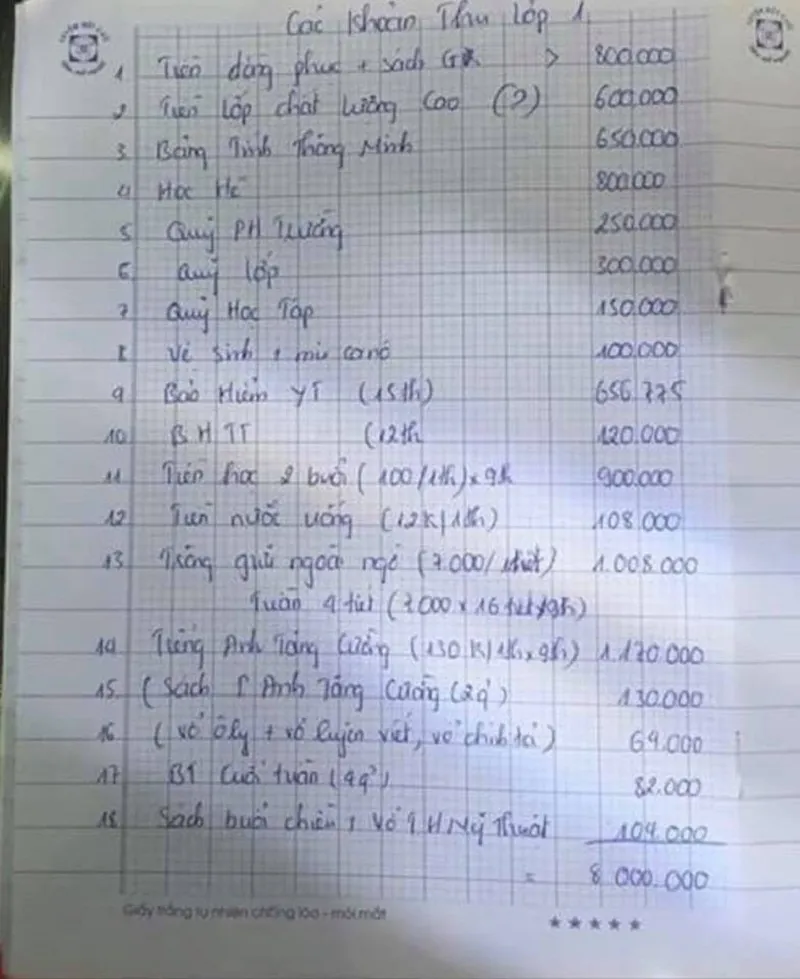 Các Khoản Thu Lớp 1
1 Tiền đồng phục + sách GK > 800.000
2 Tiền lớp chất lường Cao (2) 600.000
3 Bảng Tính Thông Minh 650.000
4 Học Hè 800.000
5 Quỹ PH Trường 250.000
6 Quỹ lớp 300.000
7 Quỹ Học Tập 150.000
8 Vệ sinh 100.000
9 Bảo Hiểm YT (15th) 656.775
10 BHTT (12th 120.000
11 Tiền học 2 buổi (100/1th)x9th 900.000
12 Tiền nước uống (12K/1th) 108.000
13 Trông giữ ngoài (7.000/1tiết) 1.008.000
Tuần 4 tiết (7.000 x 16 tiết/9th)
14 Tiếng Anh Tăng Cường (130K/1th x 9th) 1.170.000
15. (Sách T Anh Tăng Cường (2q) 130.000
16 (vở ôly + vở luyện viết, vở chính tả) 69.000
17 BT Cuối tuần (4q) 82.000
18 Sách buổi chiều, Vở Mỹ Thuật 104.000
= 8.000.000
Giấy trắng tự nhiên chống lóa - mỏi mắt
★★★★★